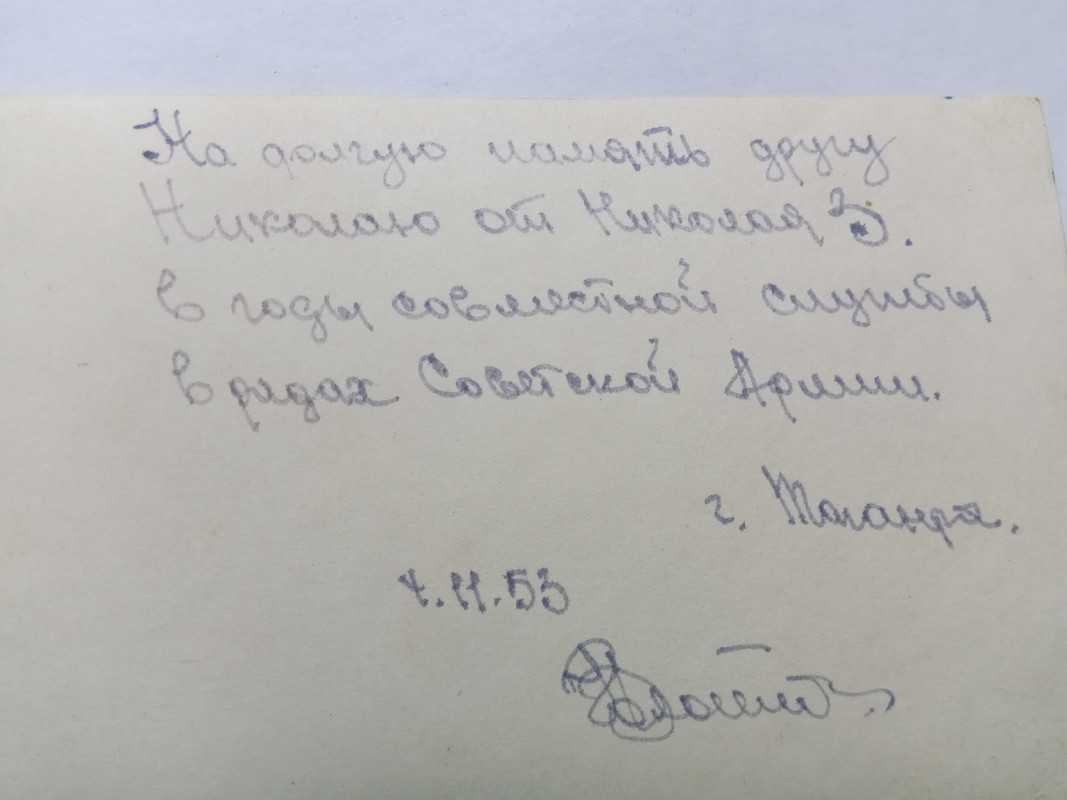 На долгую память другу
Николаю от Николая З.
в годы совместной службы
в рядах Советской Армии.
г.
.11.53